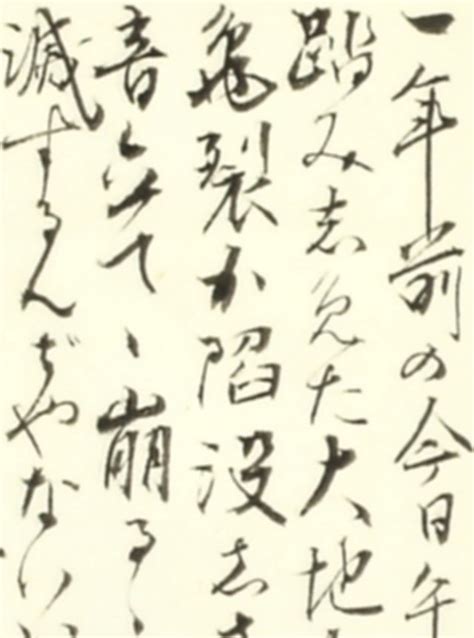 一年前の今日午
踏み志免た大地
亀裂か陥没志
音立てゝ崩るゝ
滅するんぢやない